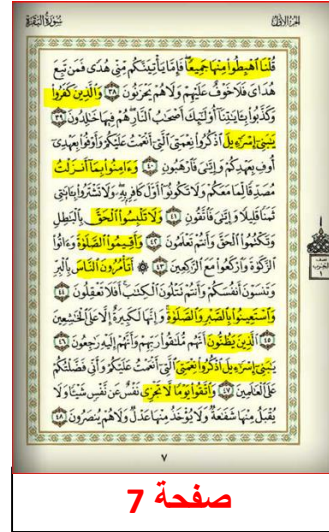 الجزء الأول
سورة البقرة
قُلْنَا اهْبِطُوا مِنْهَا جَمِيعًا فَإِمَّا يَأْتِيَنَّكُم مِّنِّي هُدًى فَمَن تَبِعَ
هُدَايَ فَلَا خَوْفٌ عَلَيْهِمْ وَلَا هُمْ يَحْزَنُونَ ٣٨ وَالَّذِينَ كَفَرُوا
وَكَذَّبُوا بِآيَاتِنَا أُولَٰئِكَ أَصْحَابُ النَّارِ هُمْ فِيهَا خَالِدُونَ ٣٩
يَٰبَنِي إِسْرَٰٓءِيلَ اذْكُرُوا نِعْمَتِيَ الَّتِي أَنْعَمْتُ عَلَيْكُمْ وَأَوْفُوا بِعَهْدِي
أُوفِ بِعَهْدِكُمْ وَإِيَّٰيَ فَارْهَبُونِ ٤٠ وَءَامِنُوا بِمَا أَنزَلْتُ
مُصَدِّقًا لِّمَا مَعَكُمْ وَلَا تَكُونُوا أَوَّلَ كَافِرٍ بِهِ وَلَا تَشْتَرُوا بِـَٔايَٰتِي
ثَمَنًا قَلِيلًا وَإِيَّٰيَ فَاتَّقُونِ ٤١ وَلَا تَلْبِسُوا الْحَقَّ بِالْبَٰطِلِ
وَتَكْتُمُوا الْحَقَّ وَأَنتُمْ تَعْلَمُونَ ٤٢ وَأَقِيمُوا الصَّلَوٰةَ وَءَاتُوا
الزَّكَوٰةَ وَارْكَعُوا مَعَ الرَّٰكِعِينَ ٤٣ ۞ أَتَأْمُرُونَ النَّاسَ بِالْبِرِّ
وَتَنسَوْنَ أَنفُسَكُمْ وَأَنتُمْ تَتْلُونَ الْكِتَٰبَ أَفَلَا تَعْقِلُونَ ٤٤
وَاسْتَعِينُوا بِالصَّبْرِ وَالصَّلَوٰةِ وَإِنَّهَا لَكَبِيرَةٌ إِلَّا عَلَى الْخَٰشِعِينَ
٤٥ الَّذِينَ يَظُنُّونَ أَنَّهُم مُّلَٰقُوا رَبِّهِمْ وَأَنَّهُمْ إِلَيْهِ رَٰجِعُونَ ٤٦
يَٰبَنِي إِسْرَٰٓءِيلَ اذْكُرُوا نِعْمَتِيَ الَّتِي أَنْعَمْتُ عَلَيْكُمْ وَأَنِّي فَضَّلْتُكُمْ
عَلَى الْعَٰلَمِينَ ٤٧ وَاتَّقُوا يَوْمًا لَّا تَجْزِي نَفْسٌ عَن نَّفْسٍ شَيْـًٔا وَلَا
يُقْبَلُ مِنْهَا شَفَٰعَةٌ وَلَا يُؤْخَذُ مِنْهَا عَدْلٌ وَلَا هُمْ يُنصَرُونَ ٤٨
٧
صفحة 7